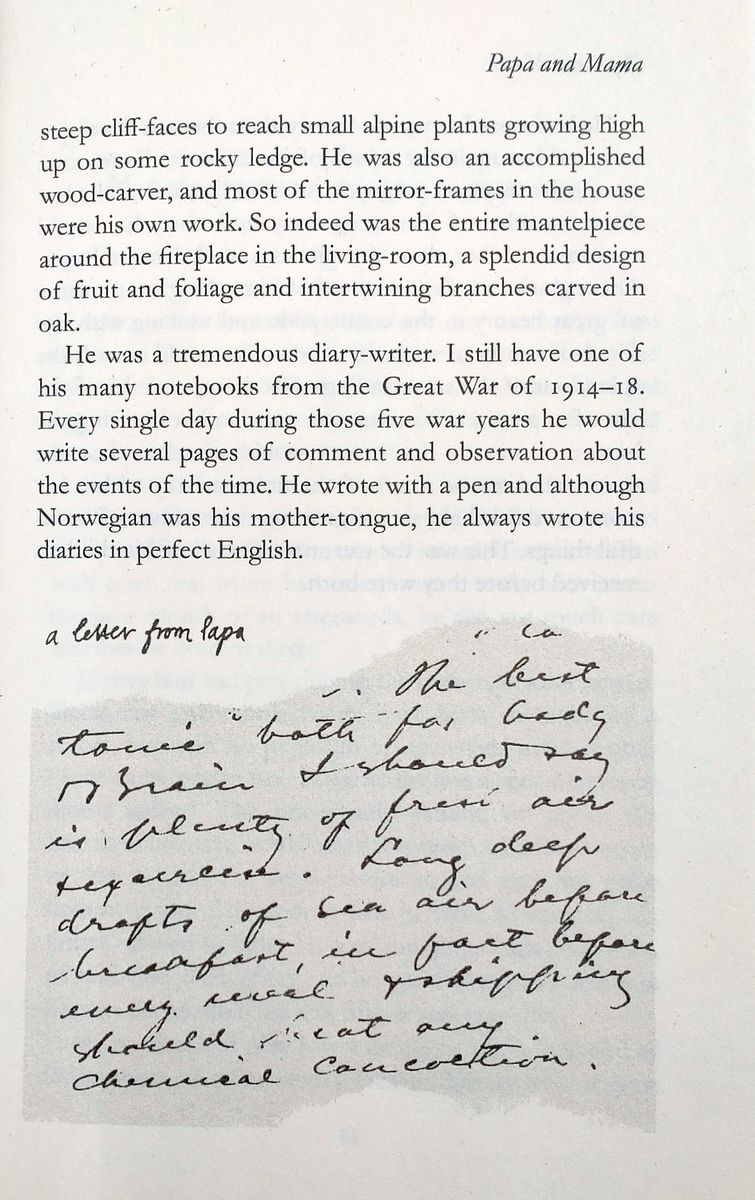 Papa and Mama
steep cliff-faces to reach small alpine plants growing high
up on some rocky ledge. He was also an accomplished
wood-carver, and most of the mirror-frames in the house
were his own work. So indeed was the entire mantelpiece
around the fireplace in the living-room, a splendid design
of fruit and foliage and intertwining branches carved in
oak.
He was a tremendous diary-writer. I still have one of
his many notebooks from the Great War of 1914–18.
Every single day during those five war years he would
write several pages of comment and observation about
the events of the time. He wrote with a pen and although
Norwegian was his mother-tongue, he always wrote his
diaries in perfect English.
a letter from Papa
The best
tonic" both for body
& Brain I should say
is plenty of fresh air
& exercise. Long deep
drafts of sea air before
breakfast, in fact before
every meal & skipping
should beat any
chemical concoction.